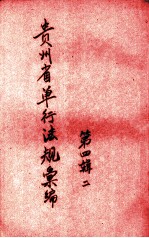 贵州省单行法规汇编
第四辑 二